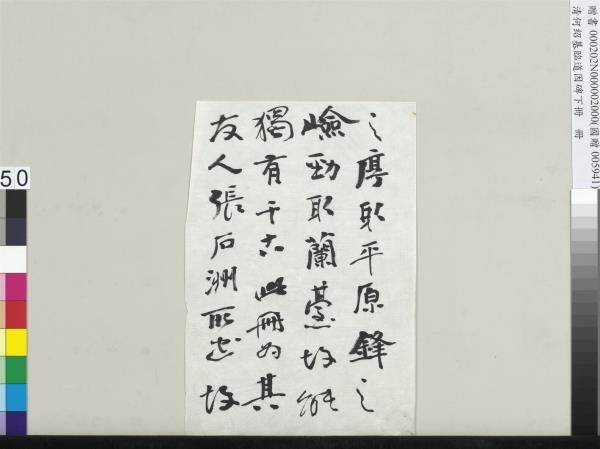 贈書 000202N000002000(國贈 005941)
清何紹基臨道因碑下冊 冊
之厚取平原鋒之
嶮勁取蘭臺故能
獨有千古此冊為其
友人張石洲所書故
50